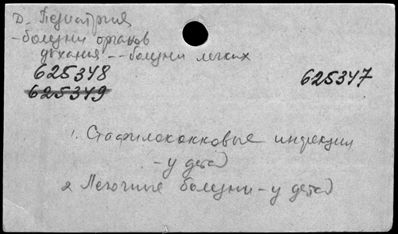 D. Педиатрия
- болезни органов
дыхания -- болезни легких
625348 625347
625349
1. Стафилококковые инфекции
- у детей
2 Легочные болезни - у детей